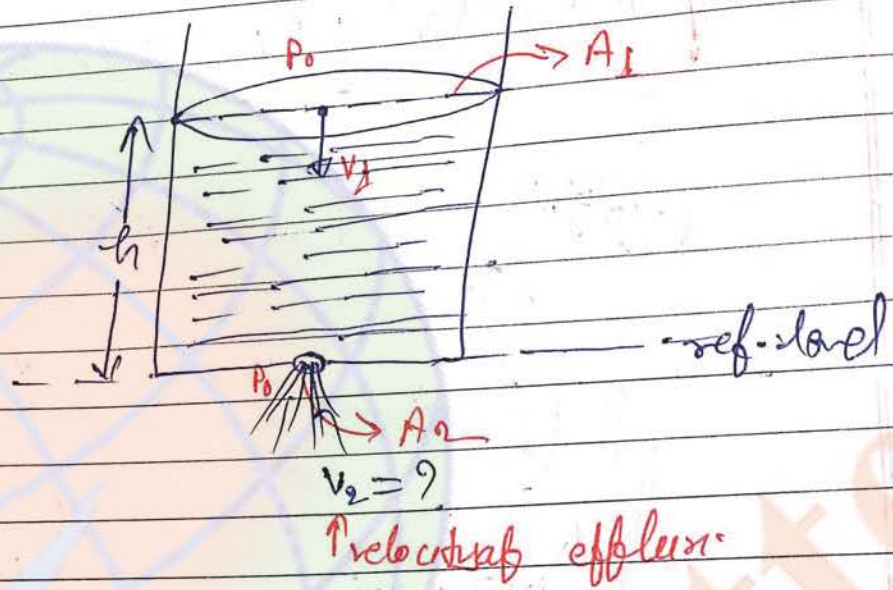 P₀
A₁
V₁
h
ref. level
P₀
A₂
V₂ = ?
↑ velocity of efflux.